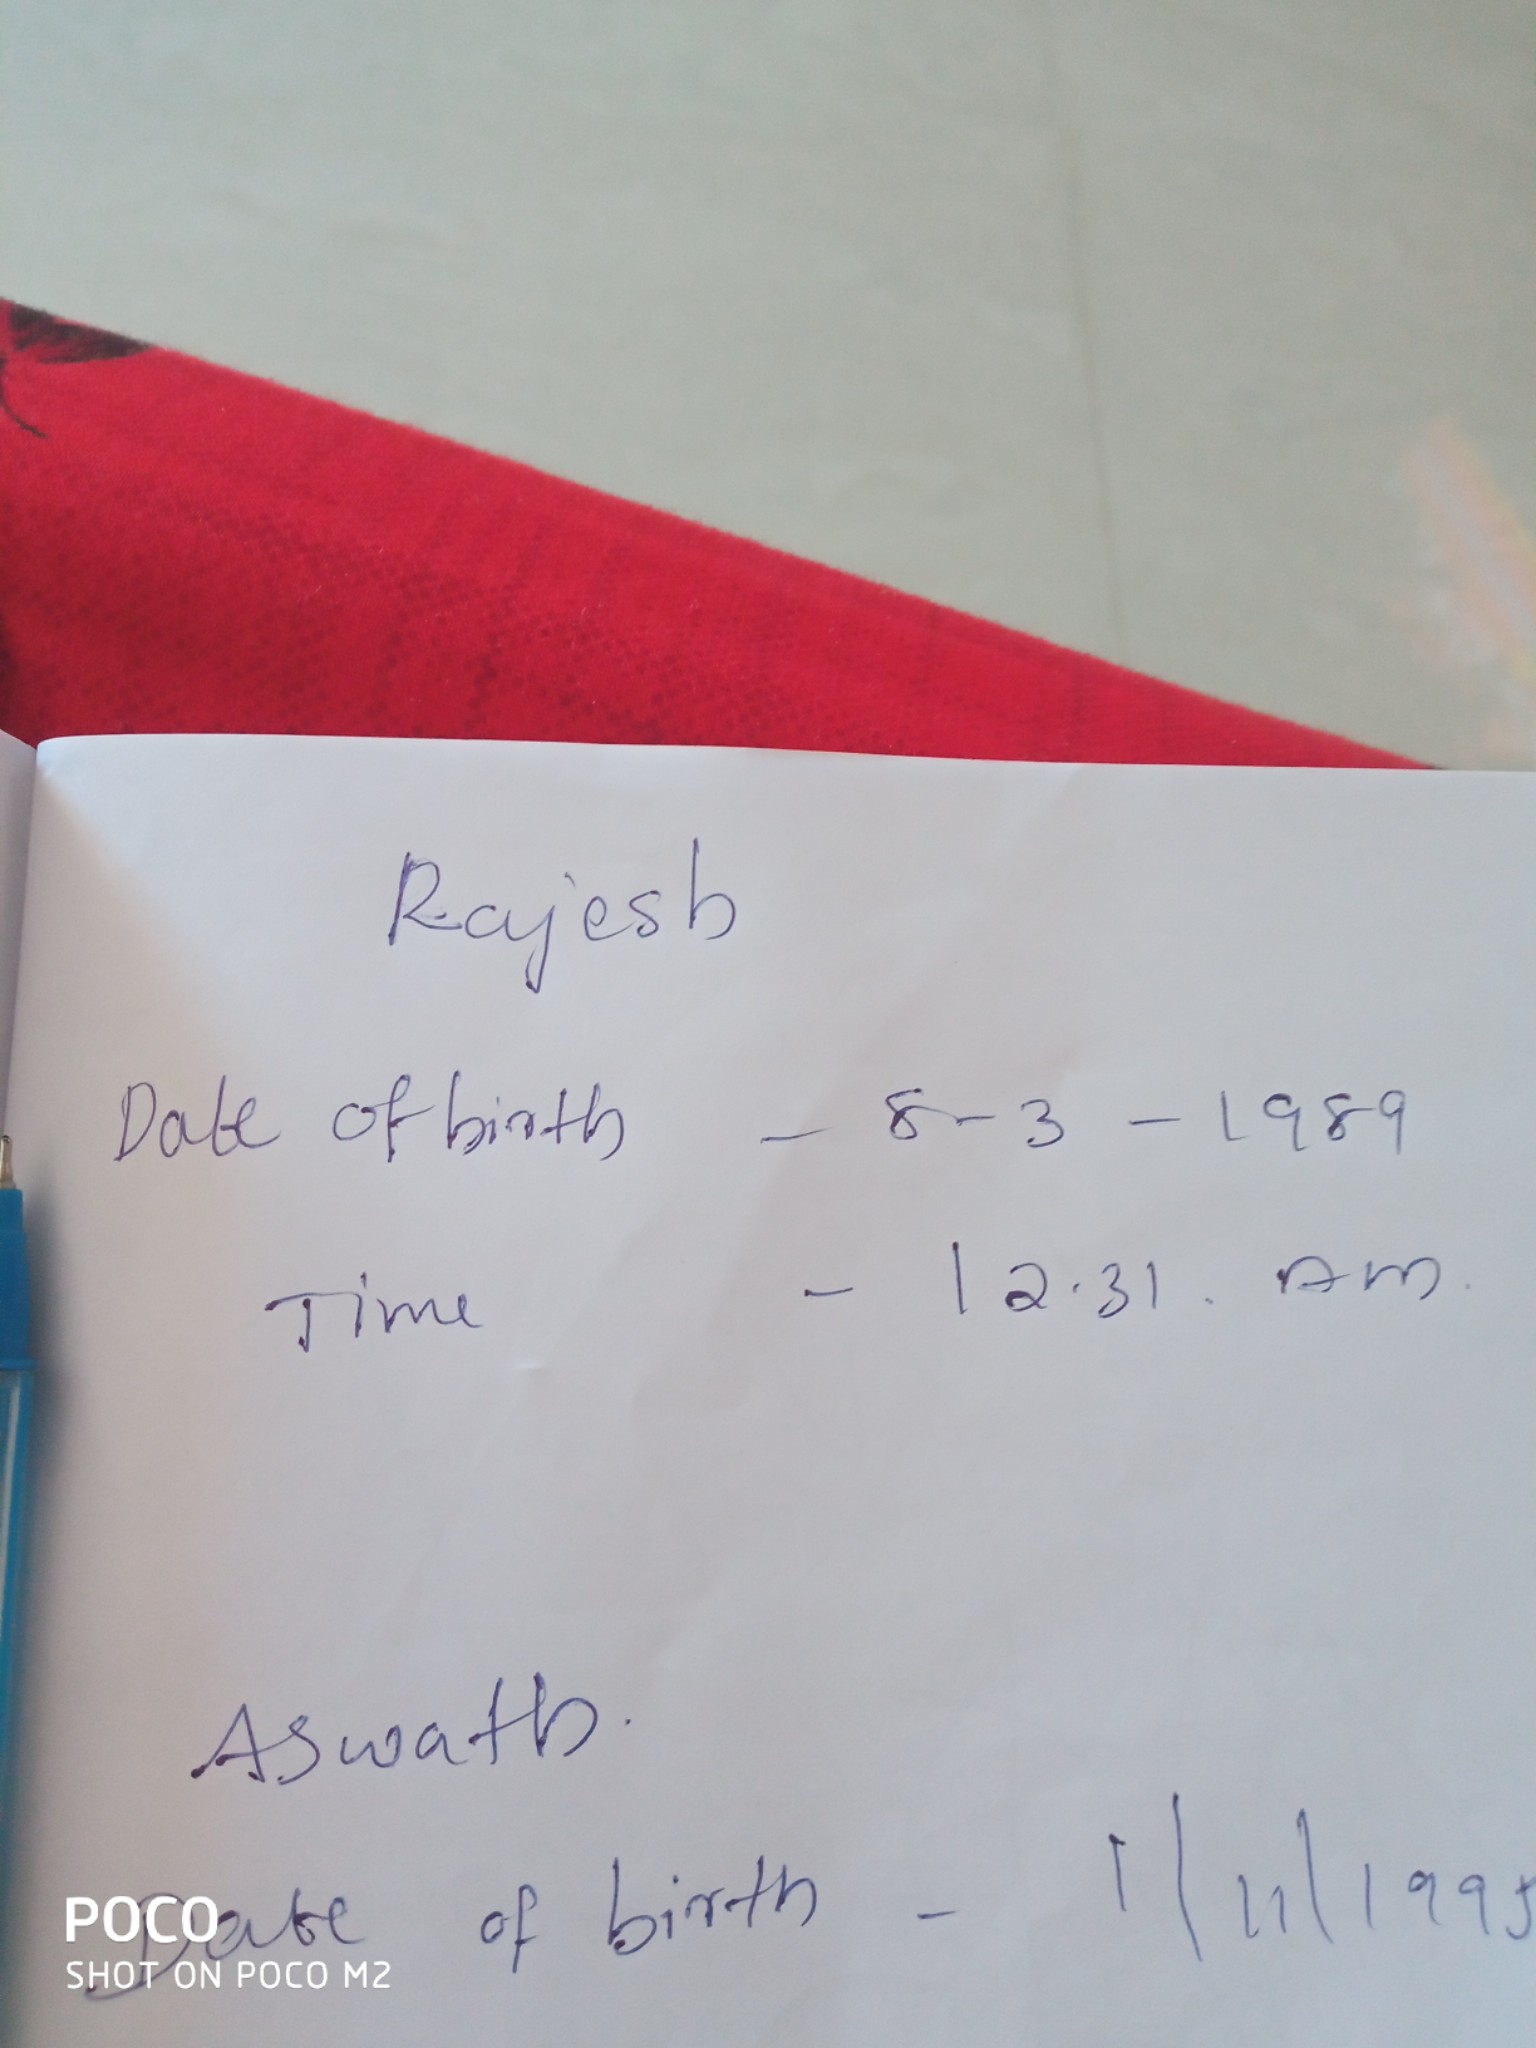 Rajesh
Date of birth - 8-3-1989
Time - 12.31. Am.
Aswath.
Date of birth - 1/11/1995
POCO
SHOT ON POCO M2